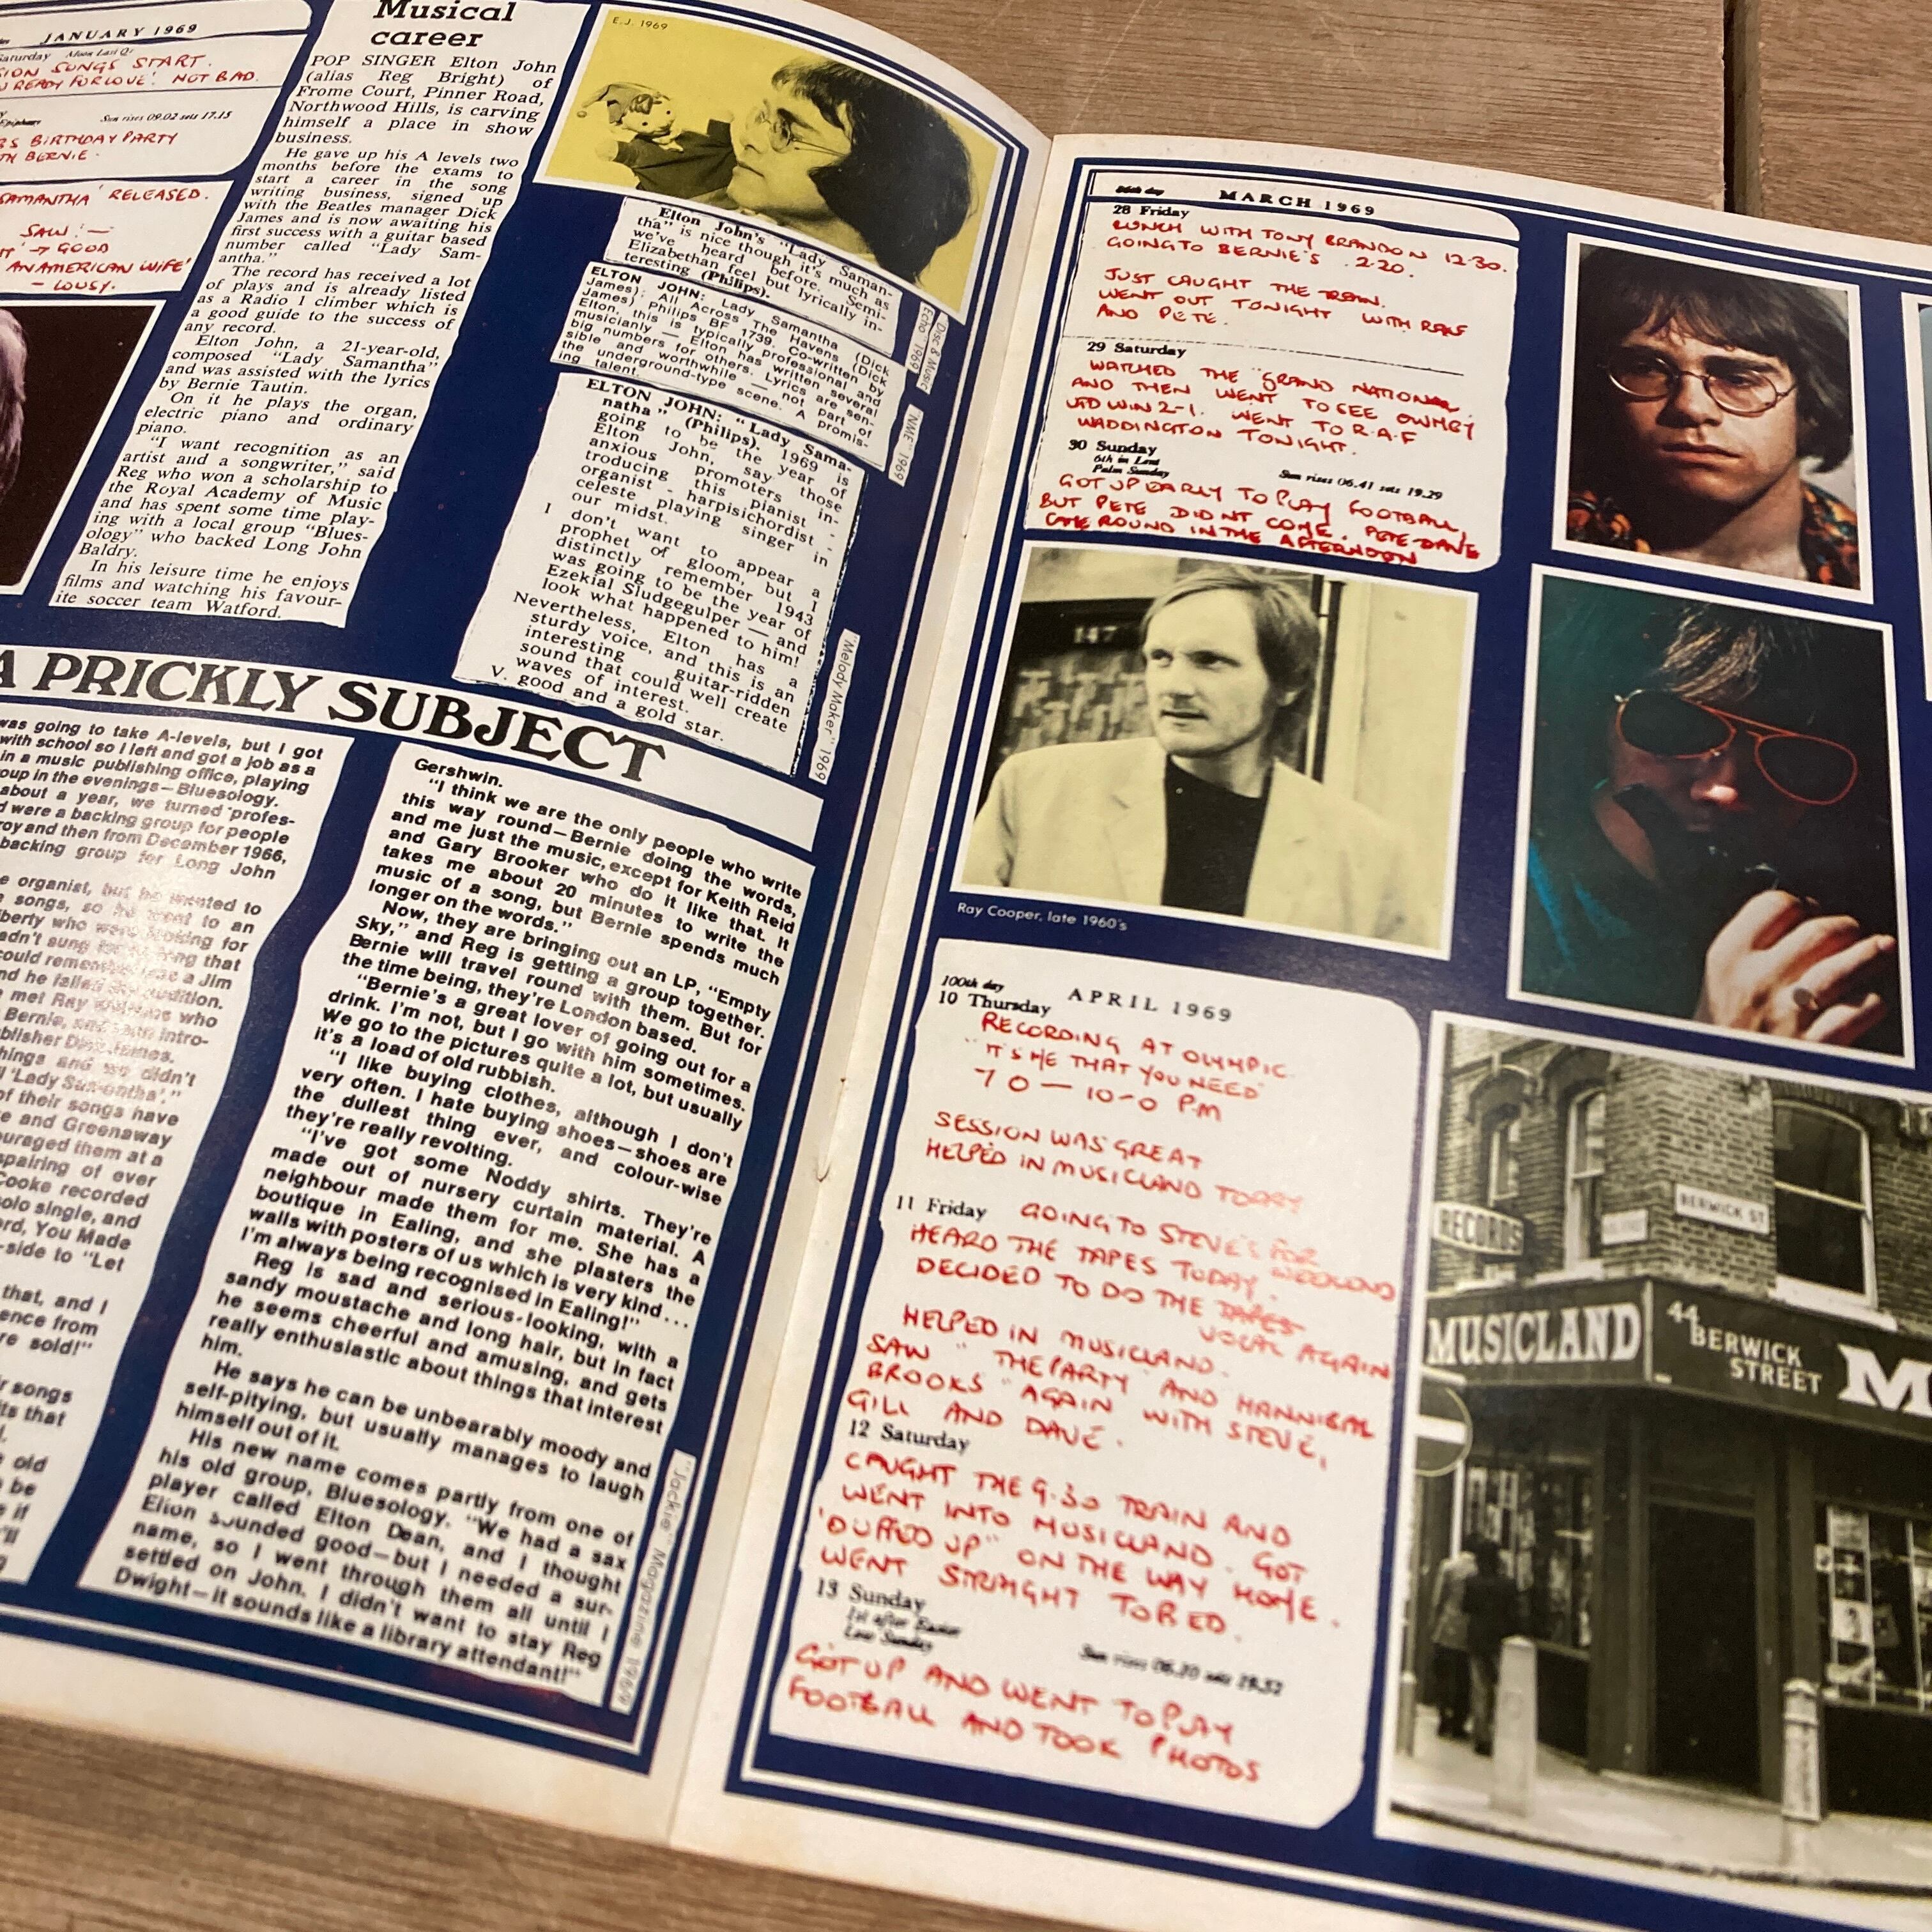 JANUARY 1969
Saturday Moon Last Qr
SION SONGS START.
READY FOR LOVE'. NOT BAD.
Epiphany Sun rises 09.02 sets 17.15
BS BIRTHDAY PARTY
TH BERNIE.
SAMANTHA' RELEASED.
SAW :—
→ GOOD
AN AMERICAN WIFE'
— LOUSY.
Musical
career
POP SINGER Elton John
(alias Reg Bright) of
Frome Court, Pinner Road,
Northwood Hills, is carving
himself a place in show
business.
He gave up his A levels two
months before the exams to
start a career in the song
writing business, signed up
with the Beatles manager Dick
James and is now awaiting his
first success with a guitar based
number called "Lady Sam-
antha."
The record has received a lot
of plays and is already listed
as a Radio 1 climber which is
a good guide to the success of
any record.
Elton John, a 21-year-old,
composed "Lady Samantha"
and was assisted with the lyrics
by Bernie Tautin.
On it he plays the organ,
electric piano and ordinary
piano.
"I want recognition as an
artist and a songwriter," said
Reg who won a scholarship to
the Royal Academy of Music
and has spent some time play-
ing with a local group "Blues-
ology" who backed Long John
Baldry.
In his leisure time he enjoys
films and watching his favour-
ite soccer team Watford.
E.J. 1969
Elton John's "Lady Saman-
tha" is nice though it's much as
we've heard before. Semi-
Elizabethan feel but lyrically in-
teresting (Philips).
Disc & Music
Echo 1969
ELTON JOHN: Lady Samantha (Dick
James); All Across The Havens (Dick
James) Philips BF 1739. Co-written by
Elton, this is typically professional and
musicianly — Elton has written several
big numbers for others. Lyrics are sen-
sible and worthwhile — not part of
the underground-type scene. A promis-
ing talent.
"NME" 1969
ELTON JOHN: "Lady Sama-
natha" (Philips). 1969 is
going to be the year of
Elton John, say those
anxious promoters in-
troducing this pianist -
organist - harpisichordist -
celeste playing singer in
our midst.
I don't want to appear a
prophet of gloom, but I
distinctly remember 1943
was going to be the year of
Ezekial Sludgegulper — and
look what happened to him!
Nevertheless, Elton has a
sturdy voice, and this is an
interesting guitar-ridden
sound that could well create
waves of interest.
V. good and a gold star.
"Melody Maker" 1969
A PRICKLY SUBJECT
was going to take A-levels, but I got
with school so I left and got a job as a
in a music publishing office, playing
oup in the evenings—Bluesology.
about a year, we turned profes-
d were a backing group for people
roy and then from December 1966,
backing group for Long John
e organist, but he wanted to
songs, so he went to an
berty who were looking for
adn't sung
could remember was a Jim
nd he failed
met Ray who
Bernie, intro-
blisher Dick James.
hings and we didn't
'Lady Samantha'."
of their songs have
e and Greenaway
ouraged them at a
spairing of ever
Cooke recorded
solo single, and
ord, You Made
-side to "Let
that, and I
ence from
re sold!"
r songs
ts that
old
be
if
'll
Gershwin.
"I think we are the only people who write
this way round—Bernie doing the words,
and me just the music, except for Keith Reid
and Gary Brooker who do it like that. It
takes me about 20 minutes to write the
music of a song, but Bernie spends much
longer on the words."
Now, they are bringing out an LP, "Empty
Sky," and Reg is getting a group together.
Bernie will travel round with them. But for
the time being, they're London based.
"Bernie's a great lover of going out for a
drink. I'm not, but I go with him sometimes.
We go to the pictures quite a lot, but usually
it's a load of old rubbish.
"I like buying clothes, although I don't
very often. I hate buying shoes—shoes are
the dullest thing ever, and colour-wise
they're really revolting.
"I've got some Noddy shirts. They're
made out of nursery curtain material. A
neighbour made them for me. She has a
boutique in Ealing, and she plasters the
walls with posters of us which is very kind...
I'm always being recognised in Ealing!"
Reg is sad and serious-looking, with a
sandy moustache and long hair, but in fact
he seems cheerful and amusing, and gets
really enthusiastic about things that interest
him.
He says he can be unbearably moody and
self-pitying, but usually manages to laugh
himself out of it.
His new name comes partly from one of
his old group, Bluesology. "We had a sax
player called Elton Dean, and I thought
Elton sounded good—but I needed a sur-
name, so I went through them all until I
settled on John. I didn't want to stay Reg
Dwight—it sounds like a library attendant!"
"Jackie" Magazine 1969
MARCH 1969
28 Friday
LUNCH WITH TONY BRANDON 12.30.
GOING TO BERNIE'S. 2.20.
JUST CAUGHT THE TRAIN.
WENT OUT TONIGHT WITH RALF
AND PETE.
29 Saturday
WATCHED THE "GRAND NATIONAL
AND THEN WENT TO SEE OWMBY
UTD WIN 2-1. WENT TO R.A.F
WADDINGTON TONIGHT.
30 Sunday
6th in Lent
Palm Sunday
Sun rises 06.41 sets 19.29
GOT UP EARLY TO PLAY FOOTBALL,
BUT PETE DIDNT COME. PETE+DAVE
CAME ROUND IN THE AFTERNOON
Ray Cooper, late 1960's
147
APRIL 1969
100th day
10 Thursday
RECORDING AT OLYMPIC
"IT'S ME THAT YOU NEED"
7 0 — 10-0 P.M
SESSION WAS GREAT
HELPED IN MUSICLAND TODAY
11 Friday GOING TO STEVE'S FOR
WEEKEND
HEARD THE TAPES TODAY.
DECIDED TO DO THE TAPES
VOCAL AGAIN
HELPED IN MUSICLAND.
SAW "THE PARTY" AND HANNIBAL
BROOKS" AGAIN WITH STEVE,
GILL AND DAVE.
12 Saturday
CAUGHT THE 9.30 TRAIN AND
WENT INTO MUSICLAND. GOT
'DUFFED UP" ON THE WAY HOME.
WENT STRAIGHT TO BED.
13 Sunday
1st after Easter
Low Sunday
Sun rises 06.10 sets 19.52
GOT UP AND WENT TO PLAY
FOOTBALL AND TOOK PHOTOS
BERWICK ST
RECORDS
MUSICLAND
44
BERWICK
STREET
M